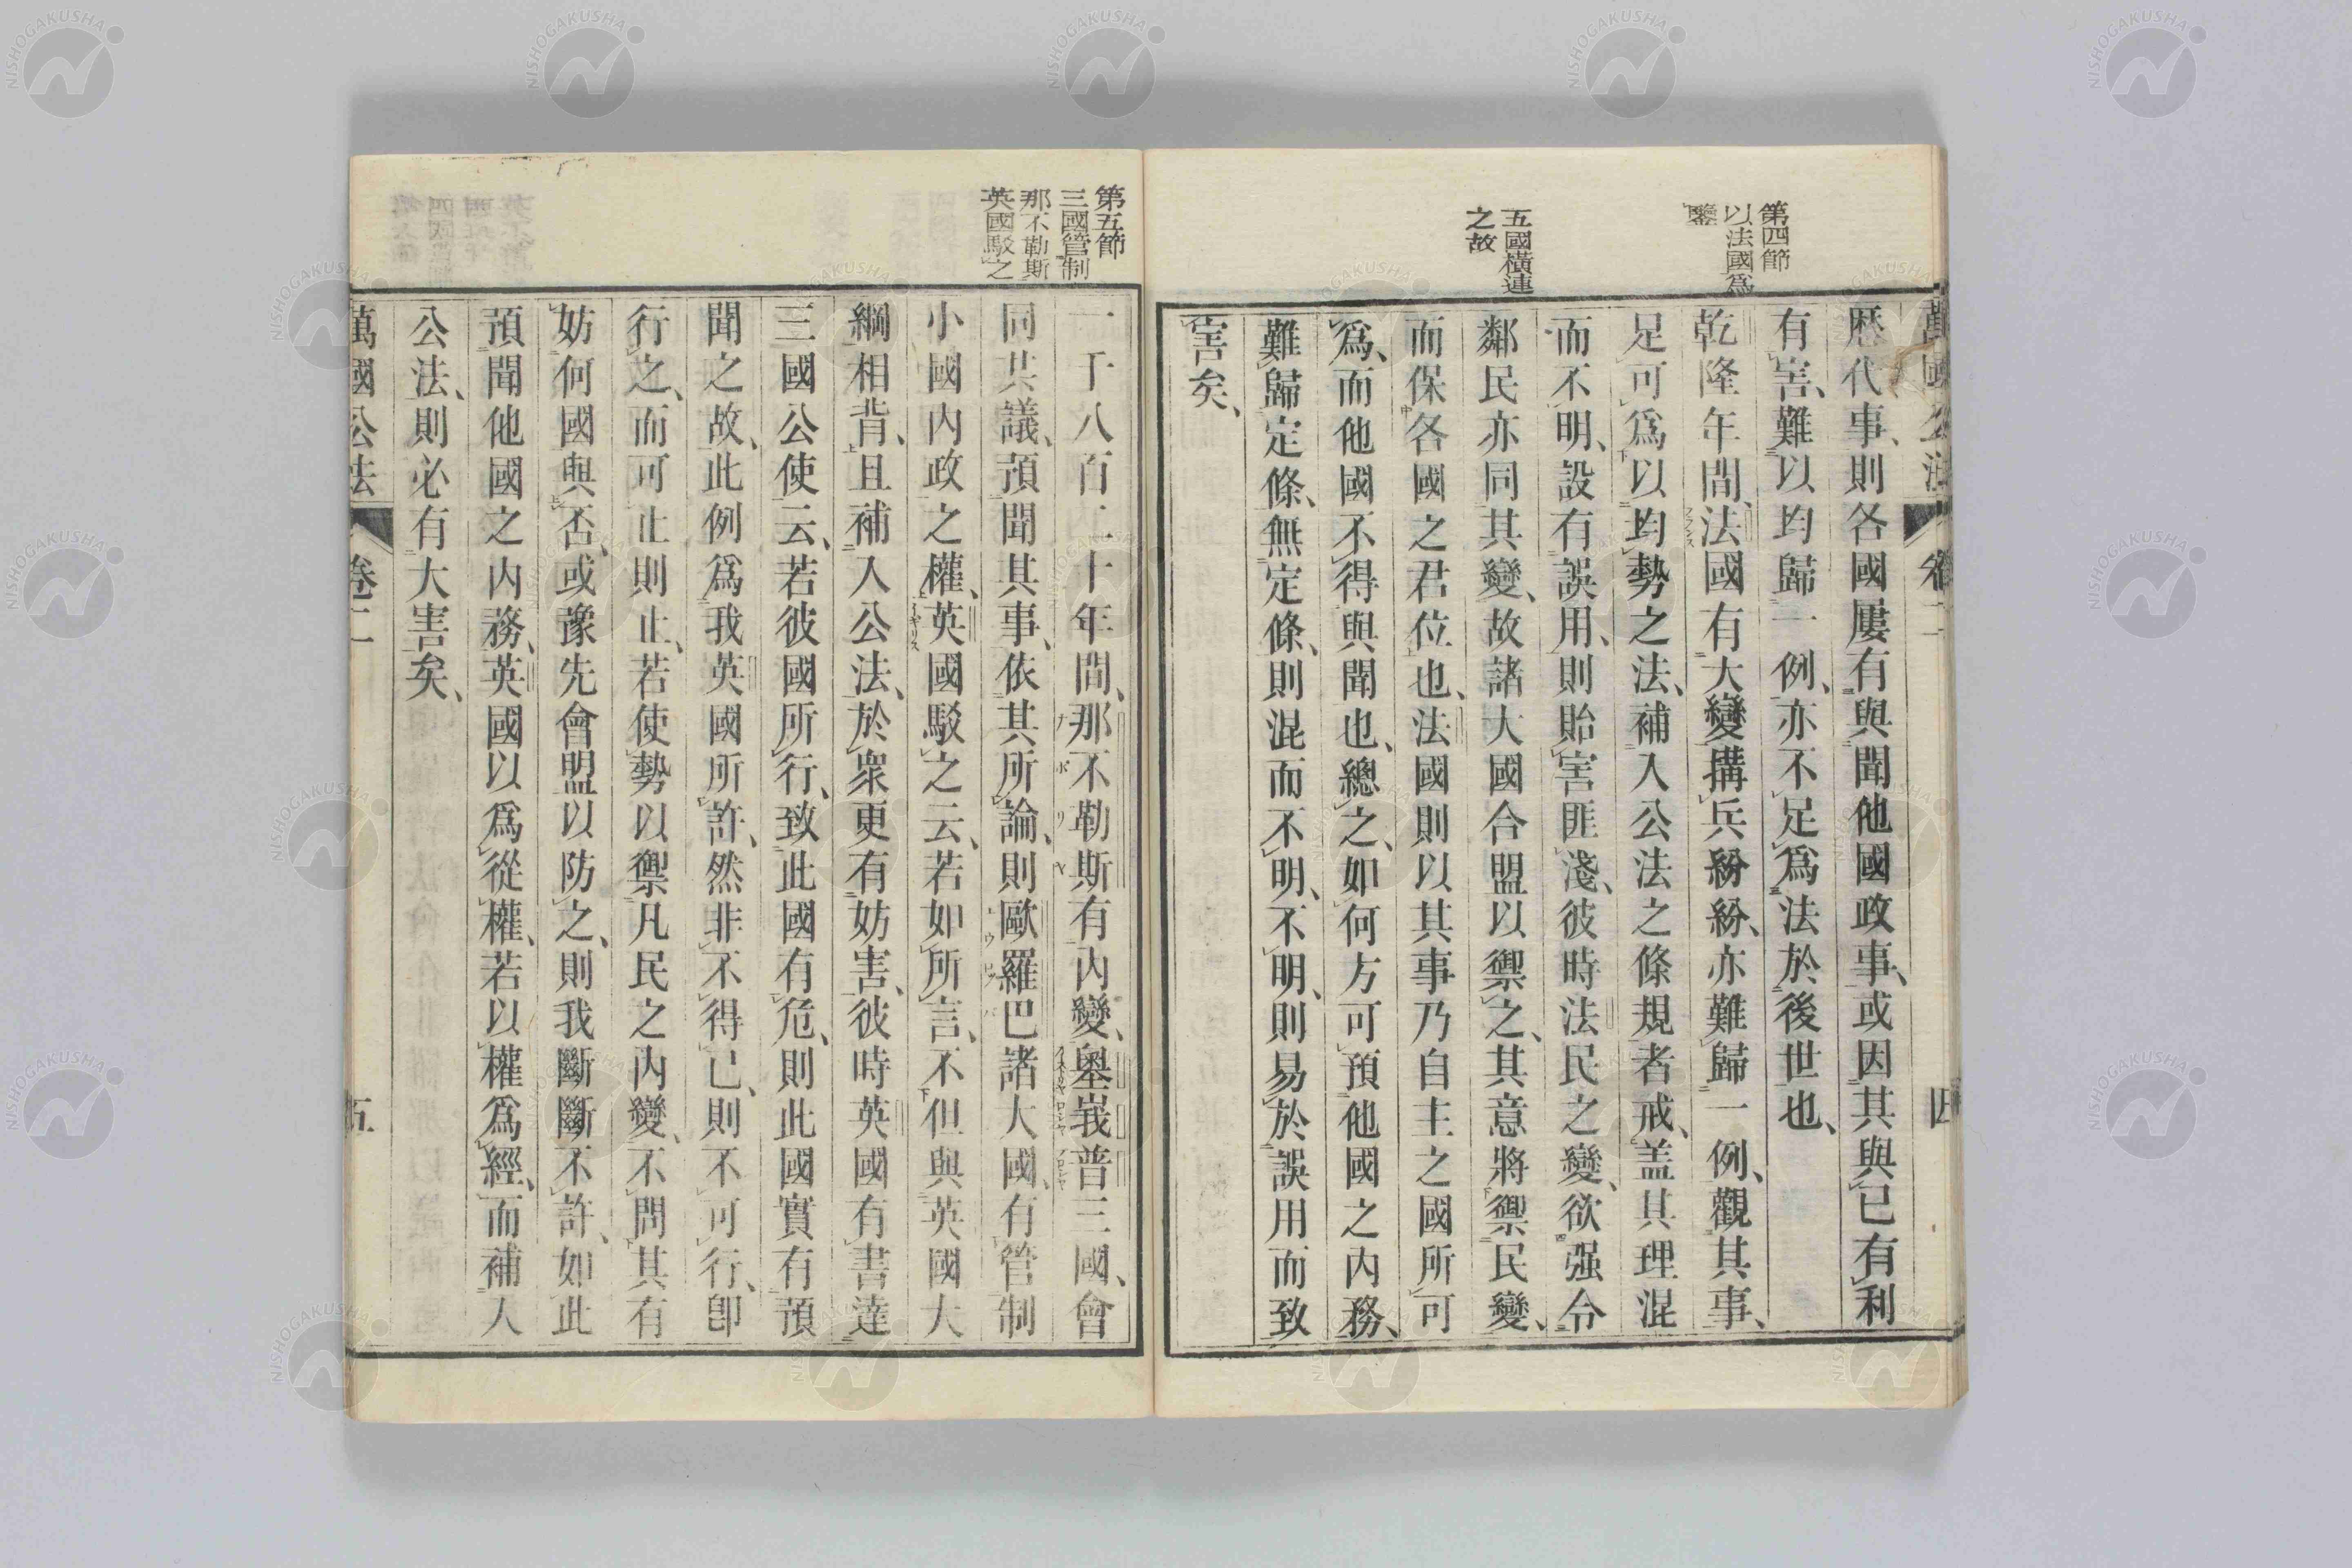 萬國公法 卷二 四
第四節
以法國爲
鑒
五國橫連
之故
歷代事、則各國屢有與聞他國政事、或因其與已有利
有害、難以均歸一例、亦不足爲法於後世也、
乾隆年間、法國有大變搆兵紛紛、亦難歸一例、觀其事、
足可爲以均勢之法、補入公法之條規者戒、盖其理混
而不明、設有誤用、則貽害匪淺、彼時法民之變、欲强令
鄰民亦同其變、故諸大國合盟以禦之、其意將禦民變、
而保各國之君位也、法國則以其事乃自主之國所可
爲、而他國不得與聞也、總之、如何方可預他國之內務、
難歸定條、無定條、則混而不明、不明、則易於誤用而致
害矣、
第五節
三國管制
那不勒斯
英國駁之
一千八百二十年間、那不勒斯有內變、奧峩普三國、會
同共議、預聞其事、依其所論、則歐羅巴諸大國、有管制
小國內政之權、英國駁之云、若如所言、不但與英國大
綱相背、且補入公法、於衆更有妨害、彼時英國有書達
三國公使云、若彼國所行、致此國有危、則此國實有預
聞之故、此例爲我英國所許、然非不得已、則不可行、卽
行之、而可止則止、若使勢以禦凡民之內變、不問其有
妨何國與否、或豫先會盟以防之、則我斷斷不許、如此
預聞他國之內務、英國以爲從權、若以權爲經、而補入
公法、則必有大害矣、
萬國公法 卷二 五